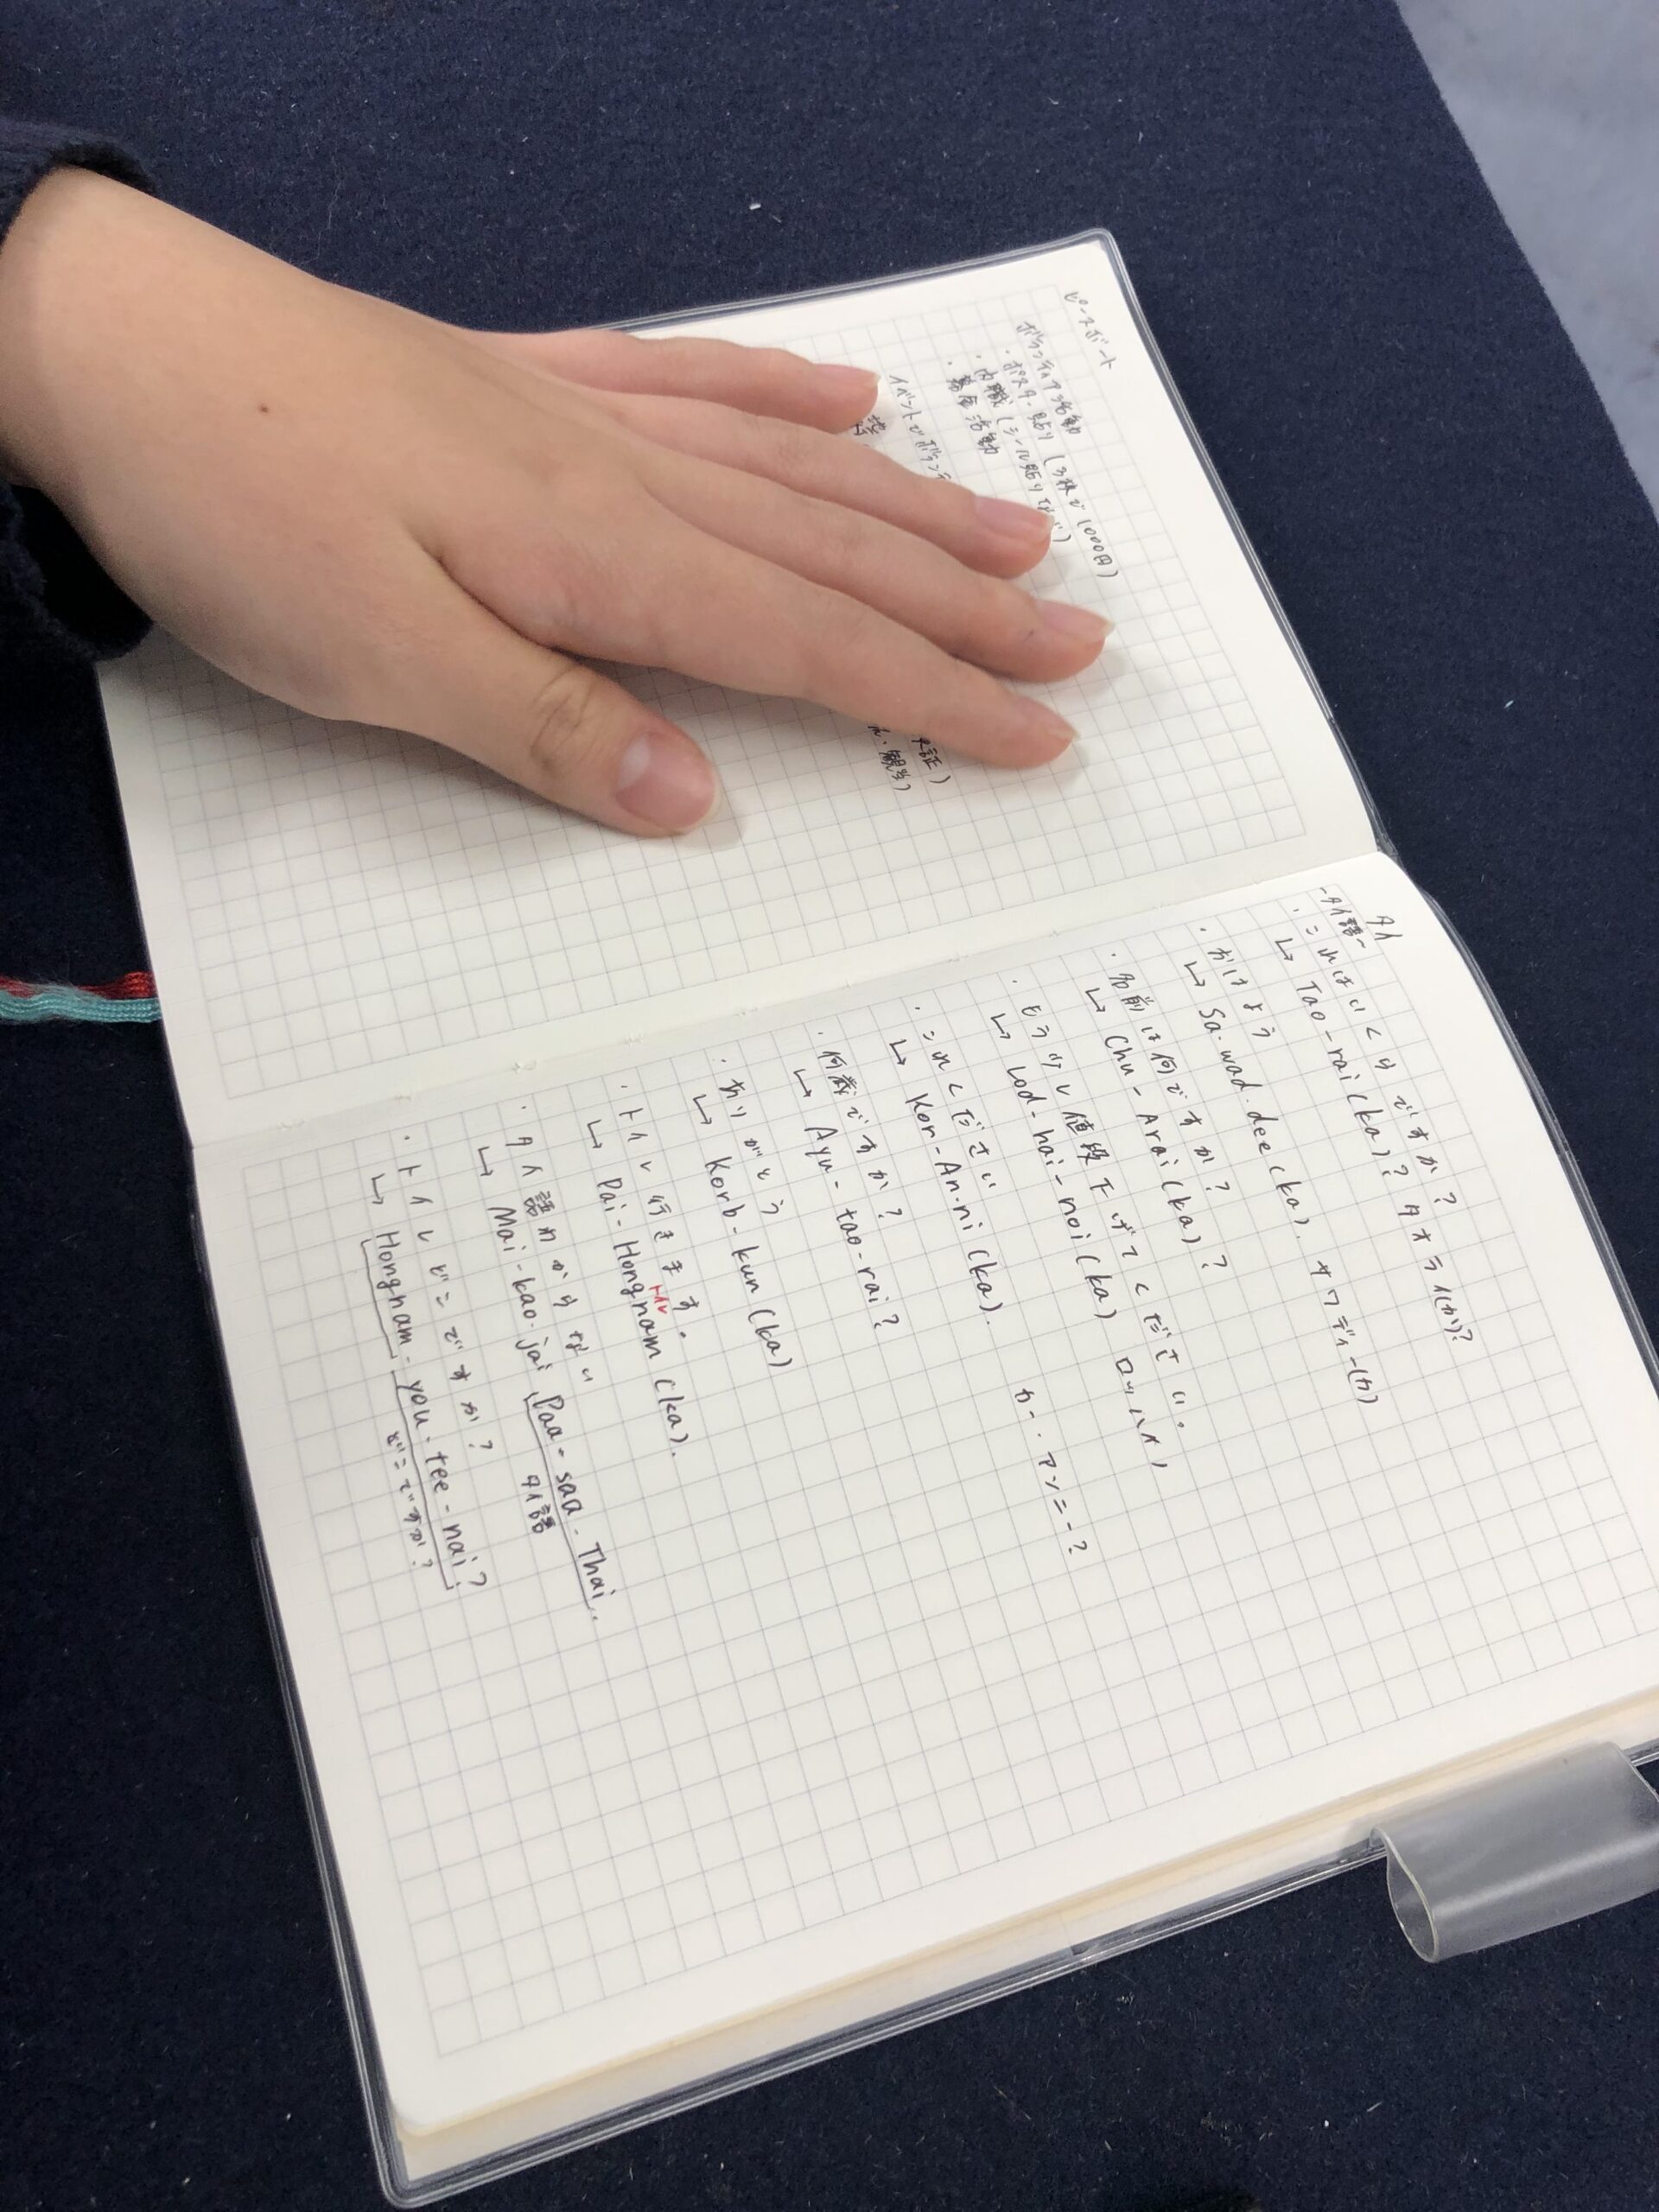 ピースボート
ボランティア活動
・ポスター貼り(3枚で1000円)
・内職(シール貼りなど)
・募金活動
イベントでボランテ
証)
観光)
タイ
-タイ語-
・これはいくらですか?
↳ Tao-rai(ka)? タオライ(カ)?
・おはよう
↳ Sa.wad.dee(ka). サワディー(カ)
・名前は何ですか?
↳ Chu-Arai(ka)?
・もう少し値段下げてください。
↳ Lod-hai-noi(ka) ロッハイ
・これください
↳ Kor-An-ni(ka). カー・アンニー?
・何歳ですか?
↳ Ayu-tao-rai?
・ありがとう
↳ Korb-kun(ka)
・トイレ行きます。
トイレ
↳ Pai-Hongnam(ka).
・タイ語わからない
↳ Mai-kao-jai Paa-saa-Thai.
タイ語
・トイレどこですか?
↳ Hongnam-you-tee-nai?
どこですか?